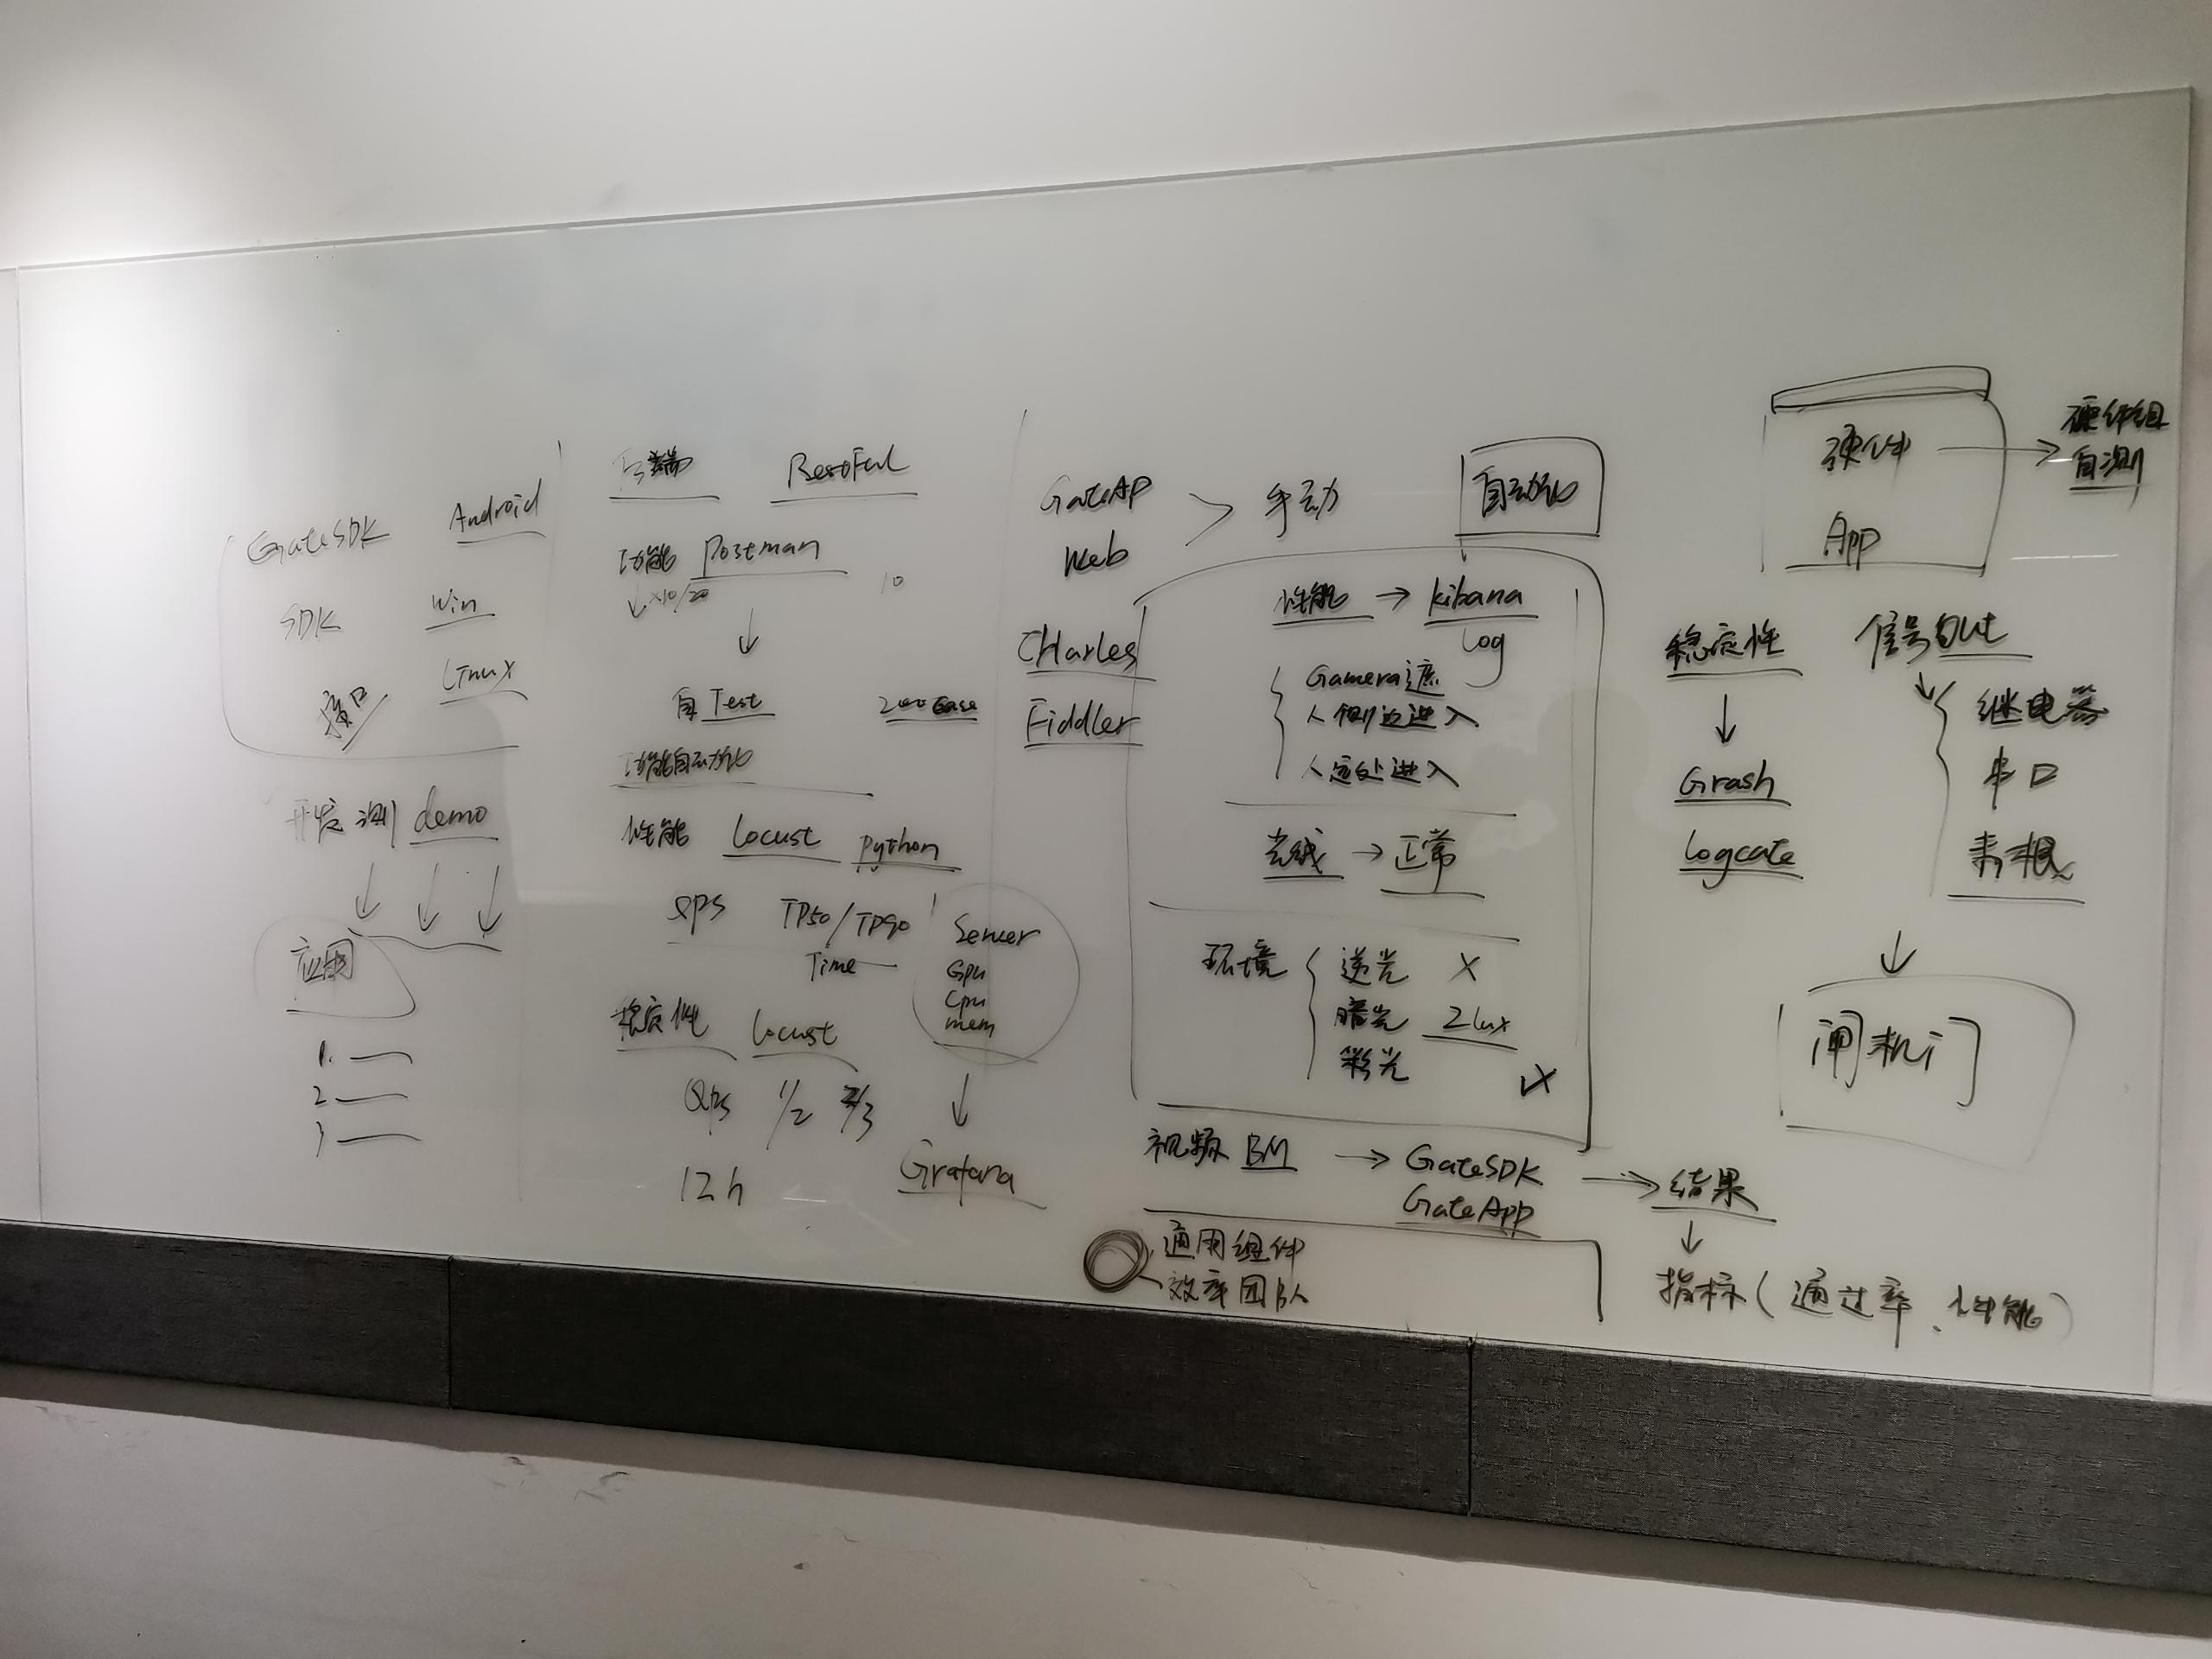 GateSDK Android
SDK Win
接口 Linux
开发 测 demo
应用
1.
2
3
后端 RestFul
功能 Postman
×10/20 10
自Test 200 Case
功能自动化
性能 Locust python
QPS TP50/TP90
Time
Server
Gpu
Cpu
mem
稳定性 Locust
Qps 1/2 2/3
12h Grafana
GateAP
Web
手动 自动化
CHarles
Fiddler
性能 → kibana
log
Gamera遮
人侧边进入
人远处进入
光线 → 正常
环境
逆光 X
暗光 2lux
彩光
视频 BM → GateSDK → 结果
GateApp
通用组件
效率团队
指标(通过率、性能)
硬件 → 硬件组
自测
App
稳定性 信号Out
Grash
Logcate
继电器
串口
韦根
闸机门